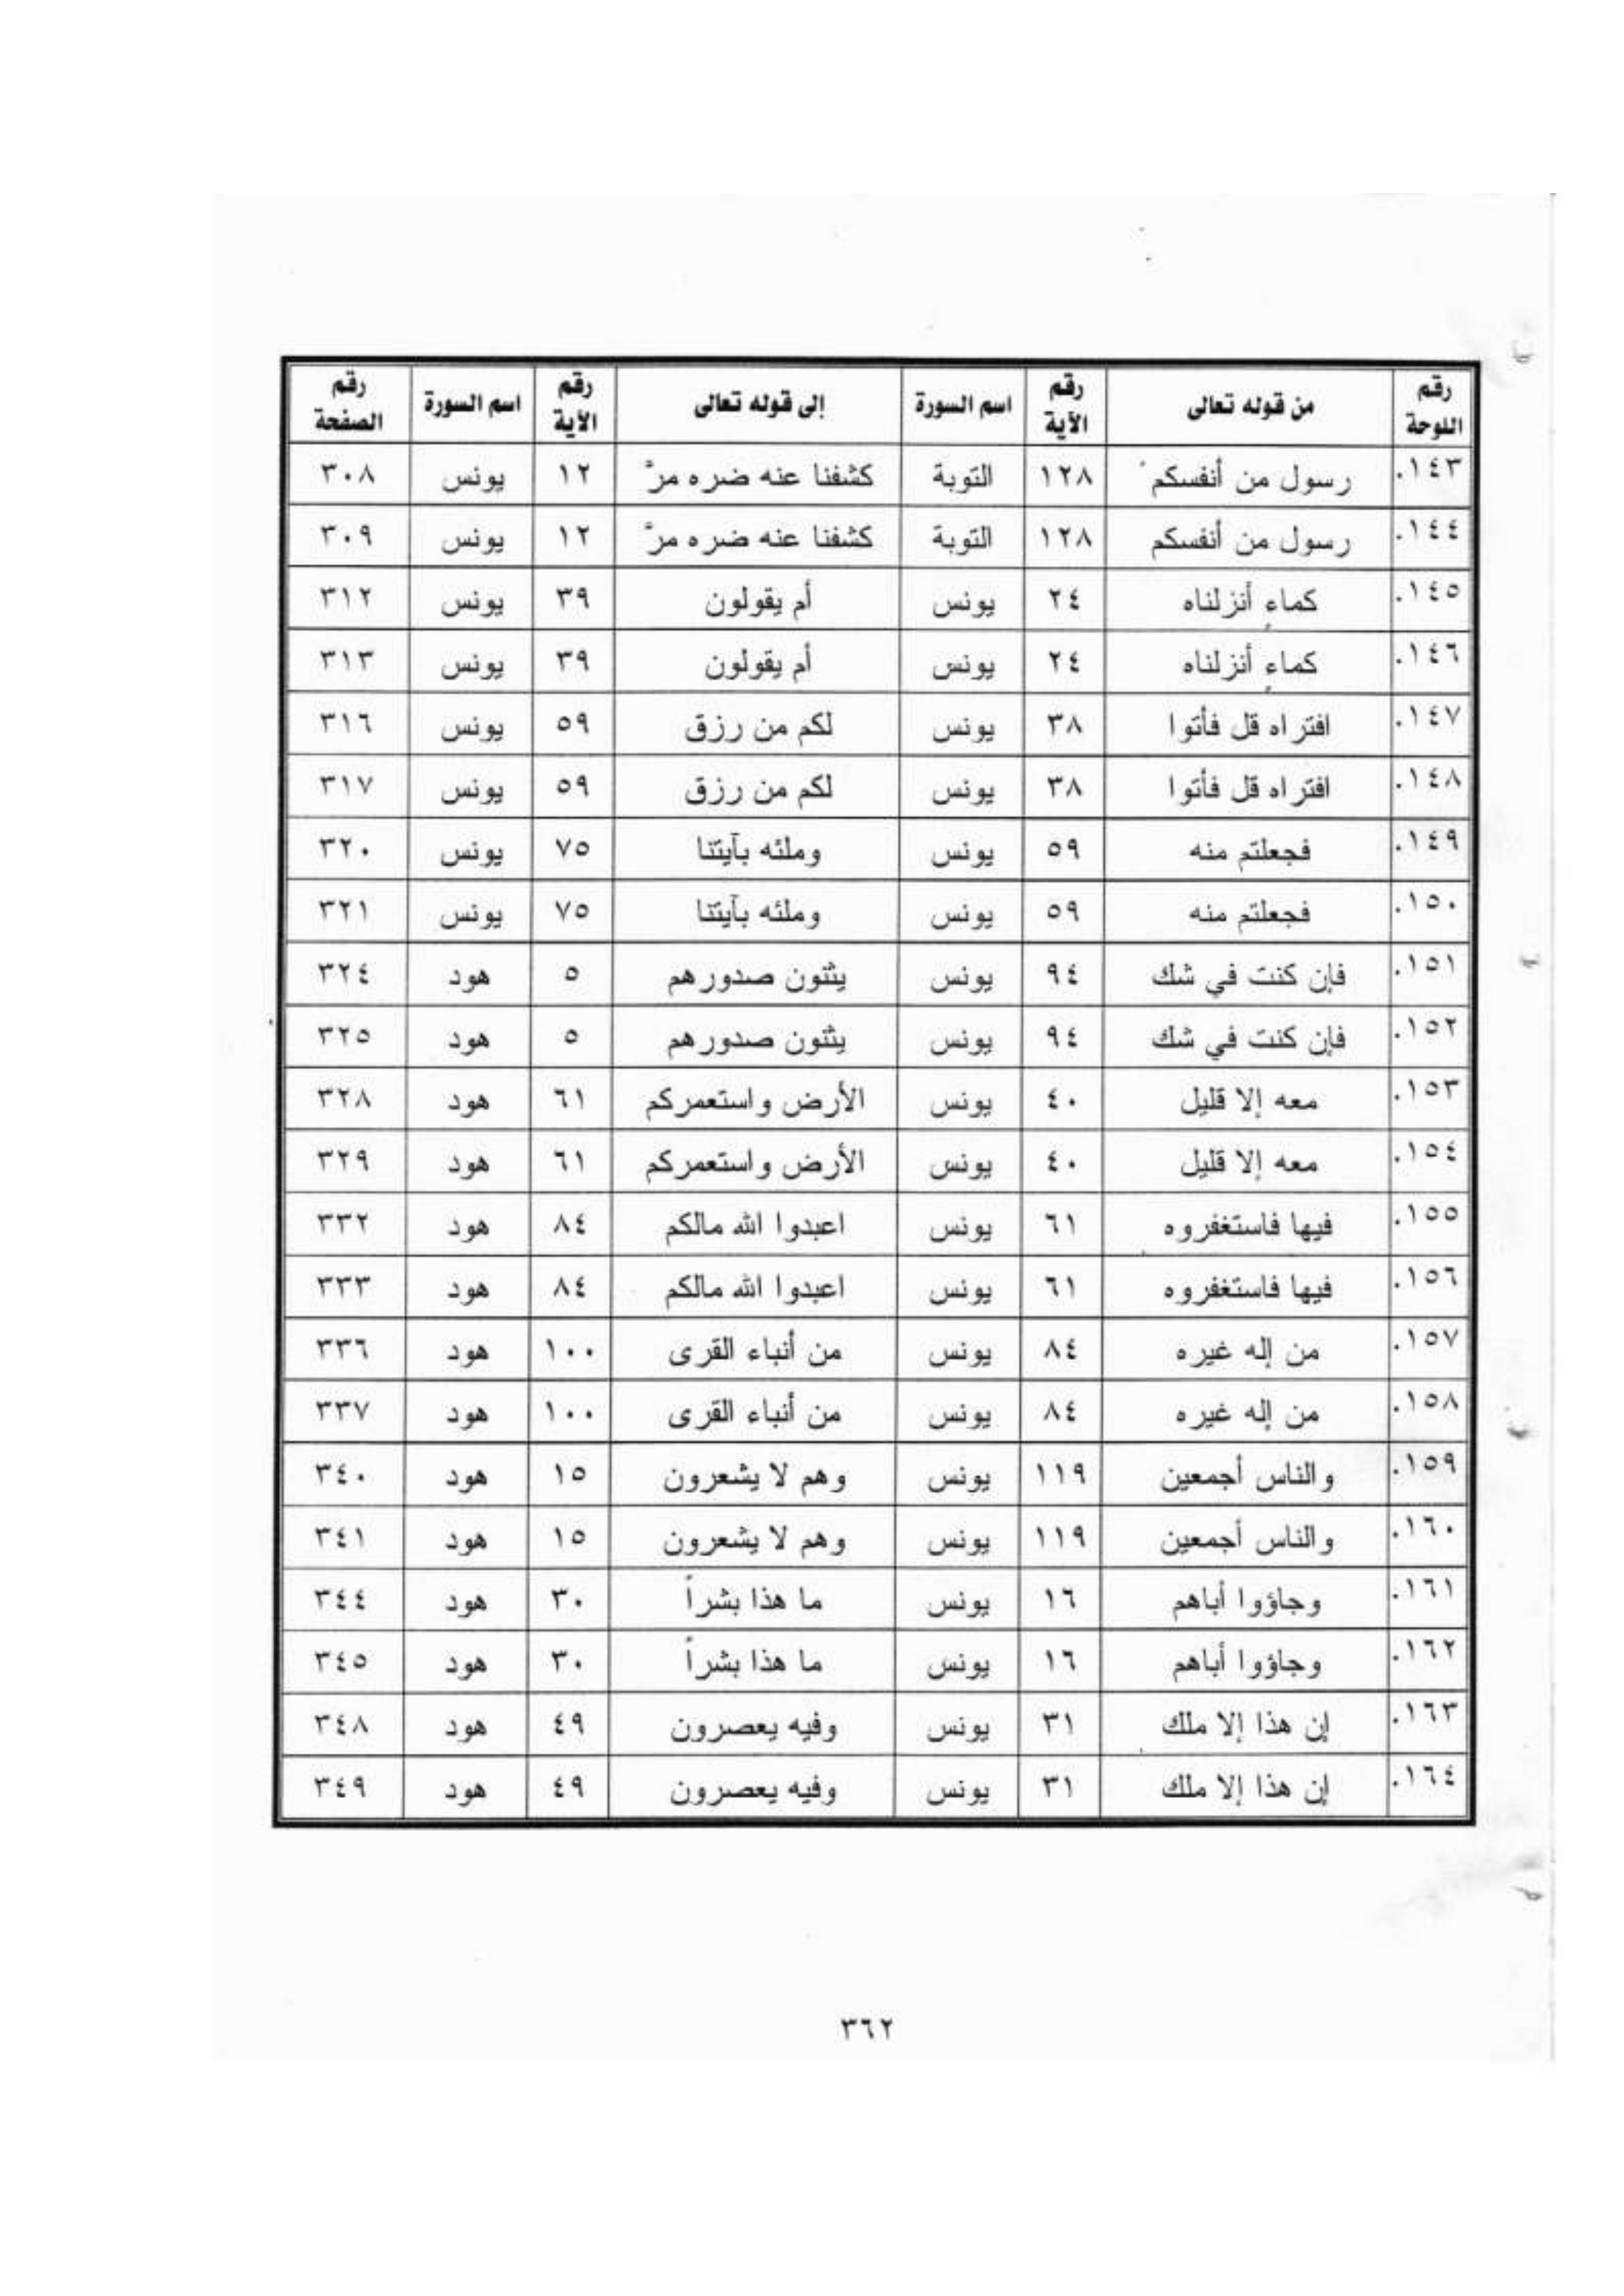 رقم اللوحة | من قوله تعالى | رقم الآية | اسم السورة | إلى قوله تعالى | رقم الآية | اسم السورة | رقم الصفحة
١٤٣. | رسول من أنفسكم | ١٢٨ | التوبة | كشفنا عنه ضره مرَّ | ١٢ | يونس | ٣٠٨
١٤٤. | رسول من أنفسكم | ١٢٨ | التوبة | كشفنا عنه ضره مرَّ | ١٢ | يونس | ٣٠٩
١٤٥. | كماءٍ أنزلناه | ٢٤ | يونس | أم يقولون | ٣٩ | يونس | ٣١٢
١٤٦. | كماءٍ أنزلناه | ٢٤ | يونس | أم يقولون | ٣٩ | يونس | ٣١٣
١٤٧. | افتراه قل فأتوا | ٣٨ | يونس | لكم من رزق | ٥٩ | يونس | ٣١٦
١٤٨. | افتراه قل فأتوا | ٣٨ | يونس | لكم من رزق | ٥٩ | يونس | ٣١٧
١٤٩. | فجعلتم منه | ٥٩ | يونس | وملئه بآيتنا | ٧٥ | يونس | ٣٢٠
١٥٠. | فجعلتم منه | ٥٩ | يونس | وملئه بآيتنا | ٧٥ | يونس | ٣٢١
١٥١. | فإن كنت في شك | ٩٤ | يونس | يثنون صدورهم | ٥ | هود | ٣٢٤
١٥٢. | فإن كنت في شك | ٩٤ | يونس | يثنون صدورهم | ٥ | هود | ٣٢٥
١٥٣. | معه إلا قليل | ٤٠ | يونس | الأرض واستعمركم | ٦١ | هود | ٣٢٨
١٥٤. | معه إلا قليل | ٤٠ | يونس | الأرض واستعمركم | ٦١ | هود | ٣٢٩
١٥٥. | فيها فاستغفروه | ٦١ | يونس | اعبدوا الله مالكم | ٨٤ | هود | ٣٣٢
١٥٦. | فيها فاستغفروه | ٦١ | يونس | اعبدوا الله مالكم | ٨٤ | هود | ٣٣٣
١٥٧. | من إله غيره | ٨٤ | يونس | من أنباء القرى | ١٠٠ | هود | ٣٣٦
١٥٨. | من إله غيره | ٨٤ | يونس | من أنباء القرى | ١٠٠ | هود | ٣٣٧
١٥٩. | والناس أجمعين | ١١٩ | يونس | وهم لا يشعرون | ١٥ | هود | ٣٤٠
١٦٠. | والناس أجمعين | ١١٩ | يونس | وهم لا يشعرون | ١٥ | هود | ٣٤١
١٦١. | وجاؤوا أباهم | ١٦ | يونس | ما هذا بشراً | ٣٠ | هود | ٣٤٤
١٦٢. | وجاؤوا أباهم | ١٦ | يونس | ما هذا بشراً | ٣٠ | هود | ٣٤٥
١٦٣. | إن هذا إلا ملك | ٣١ | يونس | وفيه يعصرون | ٤٩ | هود | ٣٤٨
١٦٤. | إن هذا إلا ملك | ٣١ | يونس | وفيه يعصرون | ٤٩ | هود | ٣٤٩
٣٦٢